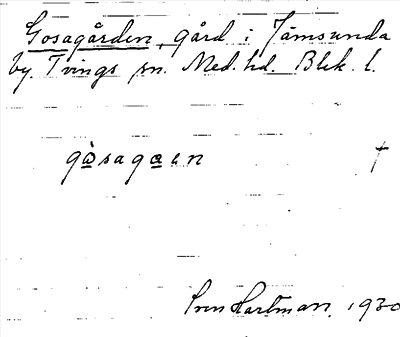 Gosagården, gård i Jämsunda
by. Tvings sn. Med. hd. Blek. l.
gòsagɑen †
Sven Hartman. 1930